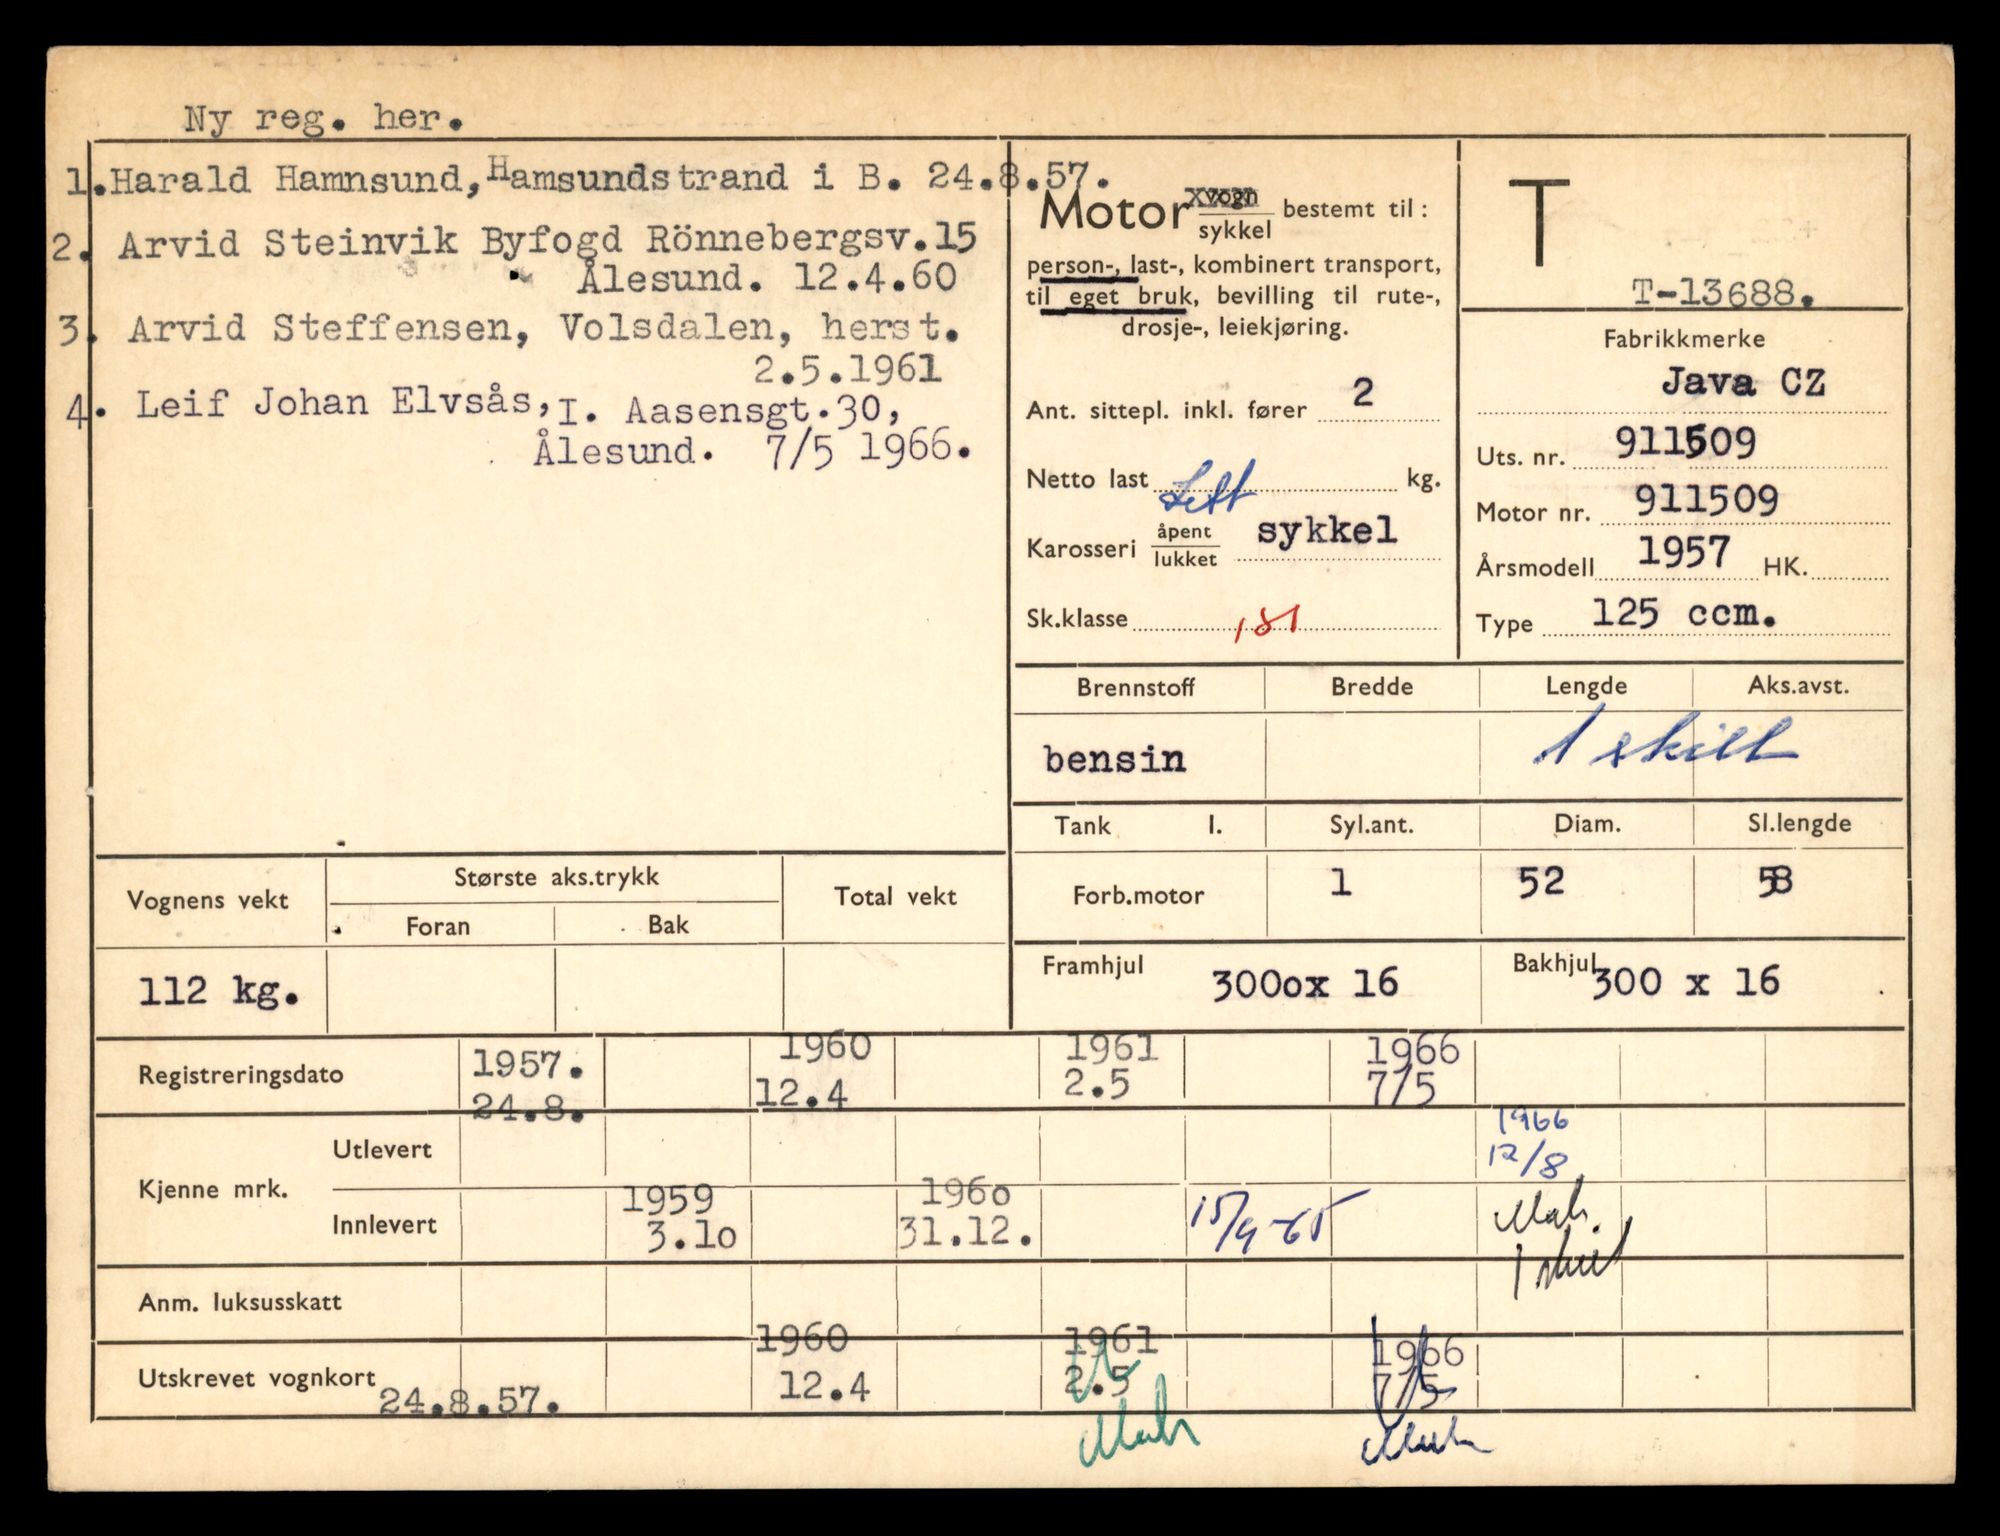 Ny reg. her.
1. Harald Hamnsund, Hamsundstrand i B. 24.8.57.
2. Arvid Steinvik Byfogd Rönnebergsv.15
Ålesund. 12.4.60
3. Arvid Steffensen, Volsdalen, herst.
2.5.1961
4. Leif Johan Elvsås, I. Aasensgt.30,
Ålesund. 7/5 1966.
Motor vogn sykkel bestemt til:
person-, last-, kombinert transport,
til eget bruk, bevilling til rute-,
drosje-, leiekjøring.
Ant. sittepl. inkl. fører 2
Netto last Lett kg.
Karosseri åpent lukket sykkel
Sk.klasse 181
T
T-13688.
Fabrikkmerke
Java CZ
Uts. nr. 911509
Motor nr. 911509
Årsmodell 1957 HK.
Type 125 ccm.
Brennstoff Bredde Lengde Aks.avst.
bensin 1 skilt
Tank l. Syl.ant. Diam. Sl.lengde
Forb.motor 1 52 58
Framhjul 300ox 16 Bakhjul 300 x 16
Vognens vekt Største aks.trykk Total vekt
Foran Bak
112 kg.
Registreringsdato 1957. 1960 1961 1966
24.8. 12.4 2.5 7/5
Kjenne mrk. Utlevert 1966
12/8
Innlevert 1959 1960 15/9-65
3.10 31.12.
1 skilt
Anm. luksusskatt
Utskrevet vognkort 1960 1961 1966
24.8.57. 12.4 2.5 7/5